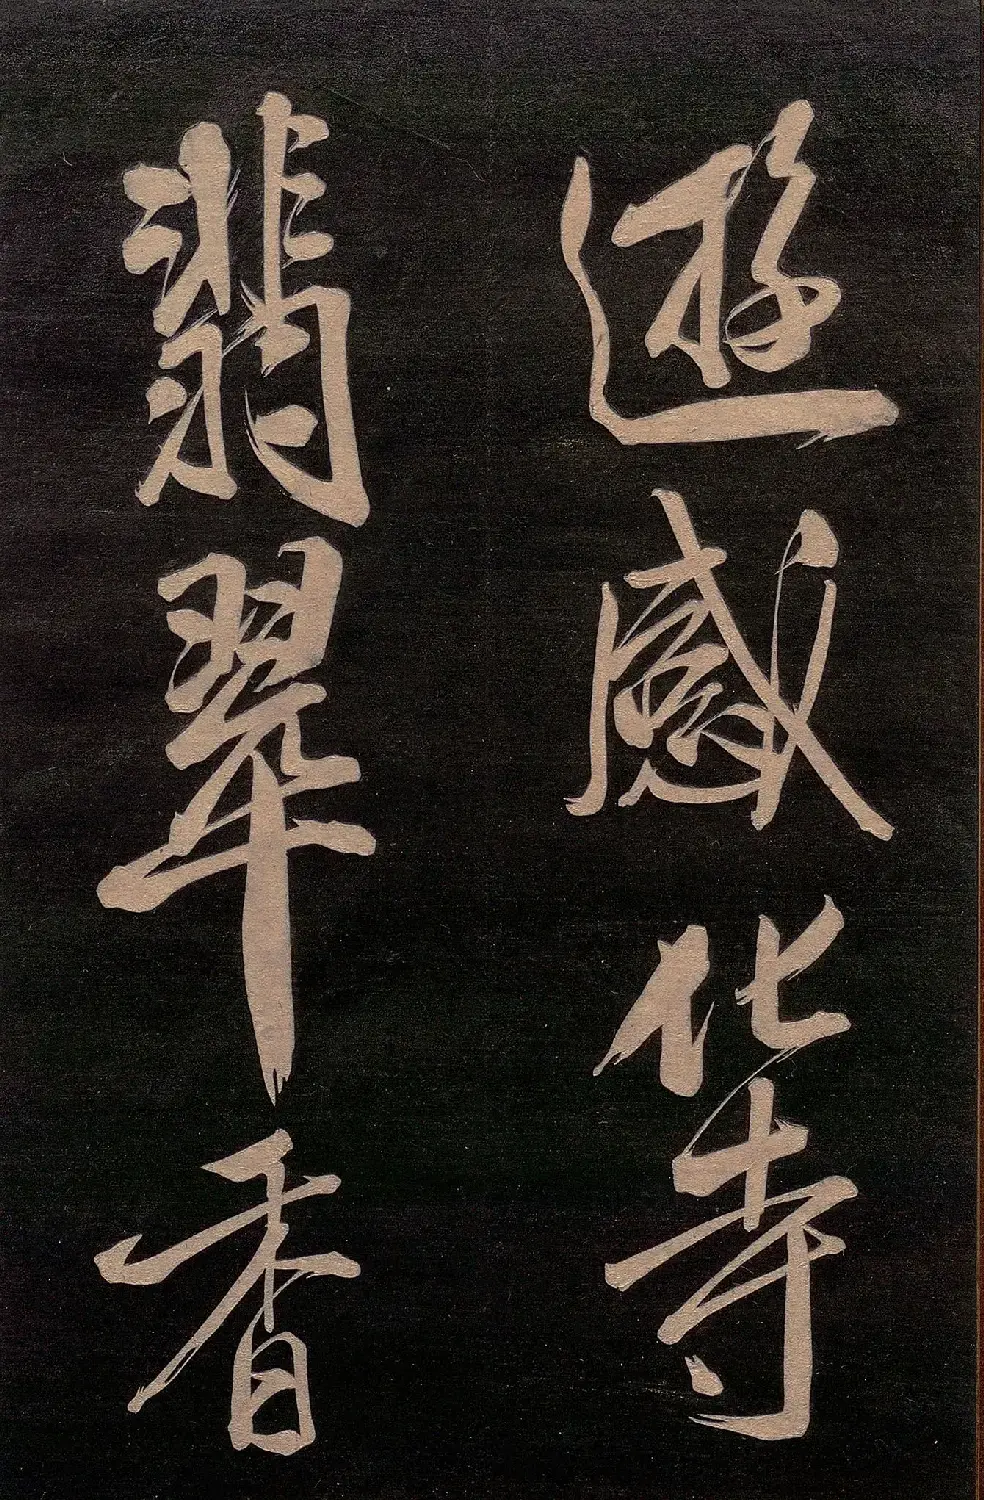 遊感化寺
翡翠香